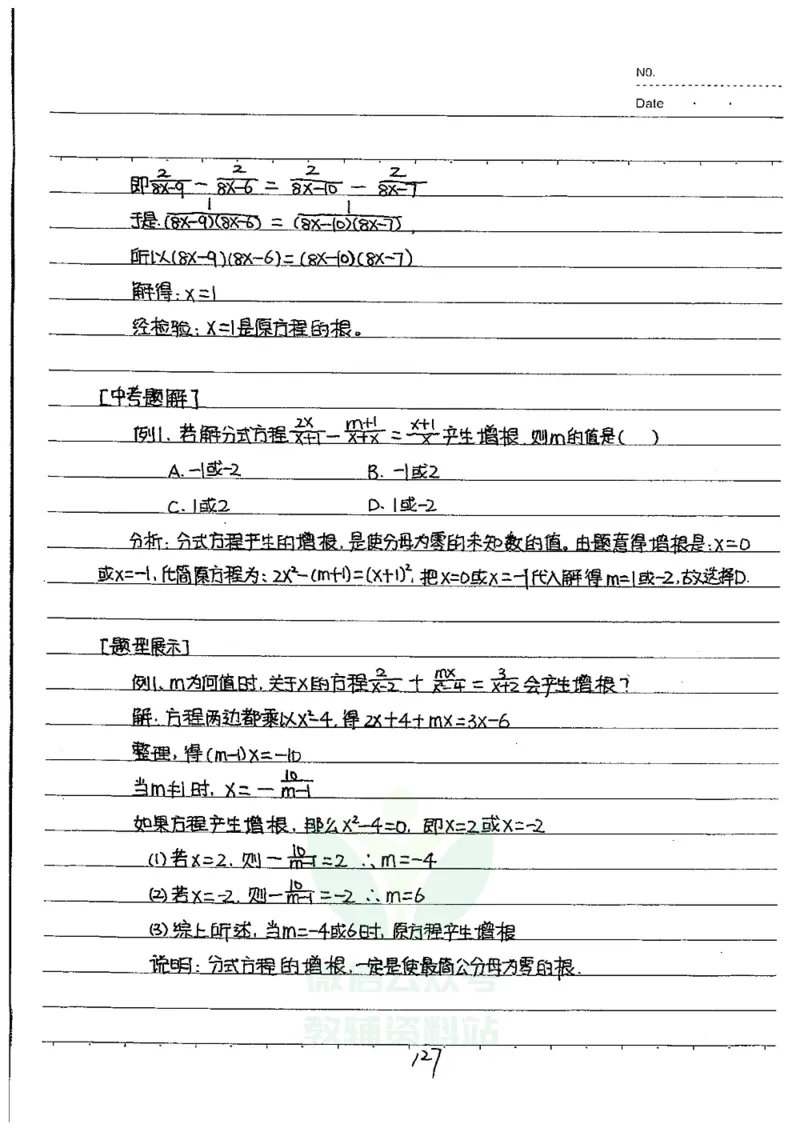 NO.
Date · ·
即 2/(8x-9) - 2/(8x-6) = 2/(8x-10) - 2/(8x-7)
于是. 1/((8x-9)(8x-6)) = 1/((8x-10)(8x-7)),
所以(8x-9)(8x-6)=(8x-10)(8x-7)
解得:x=1
经检验:x=1是原方程的根。
[中考题解]
例1、若解分式方程 2x/(x+1) - (m+1)/(x+x) = (x+1)/x 产生增根,则m的值是( )
A. -1或-2 B. -1或2
C. 1或2 D. 1或-2
分析:分式方程产生的增根,是使分母为零的未知数的值。由题意得增根是:x=0
或x=-1,化简原方程为:2x²-(m+1)=(x+1)²,把x=0或x=-1代入解得m=1或-2,故选择D.
[题型展示]
例1、m为何值时,关于x的方程 2/(x-2) + mx/(x²-4) = 3/(x+2) 会产生增根?
解.方程两边都乘以x²-4,得2x+4+mx=3x-6
整理,得(m-1)x=-10
当m≠1时, x= - 10/(m-1)
如果方程产生增根,那么x²-4=0, 即x=2或x=-2
(1)若x=2, 则 - 10/(m-1) =2 ∴m=-4
(2)若x=-2, 则 - 10/(m-1) =-2 ∴m=6
(3)综上所述,当m=-4或6时,原方程产生增根
说明:分式方程的增根,一定是使最简公分母为零的根.
微信公众号
教辅资料站
127